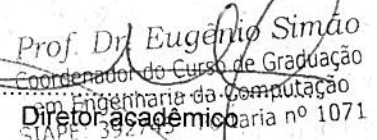 Prof. Dr. Eugênio Simão
Coordenador do Curso de Graduação
em Engenharia da Computação
Diretor acadêmico
SIAPE: 392 aria nº 1071